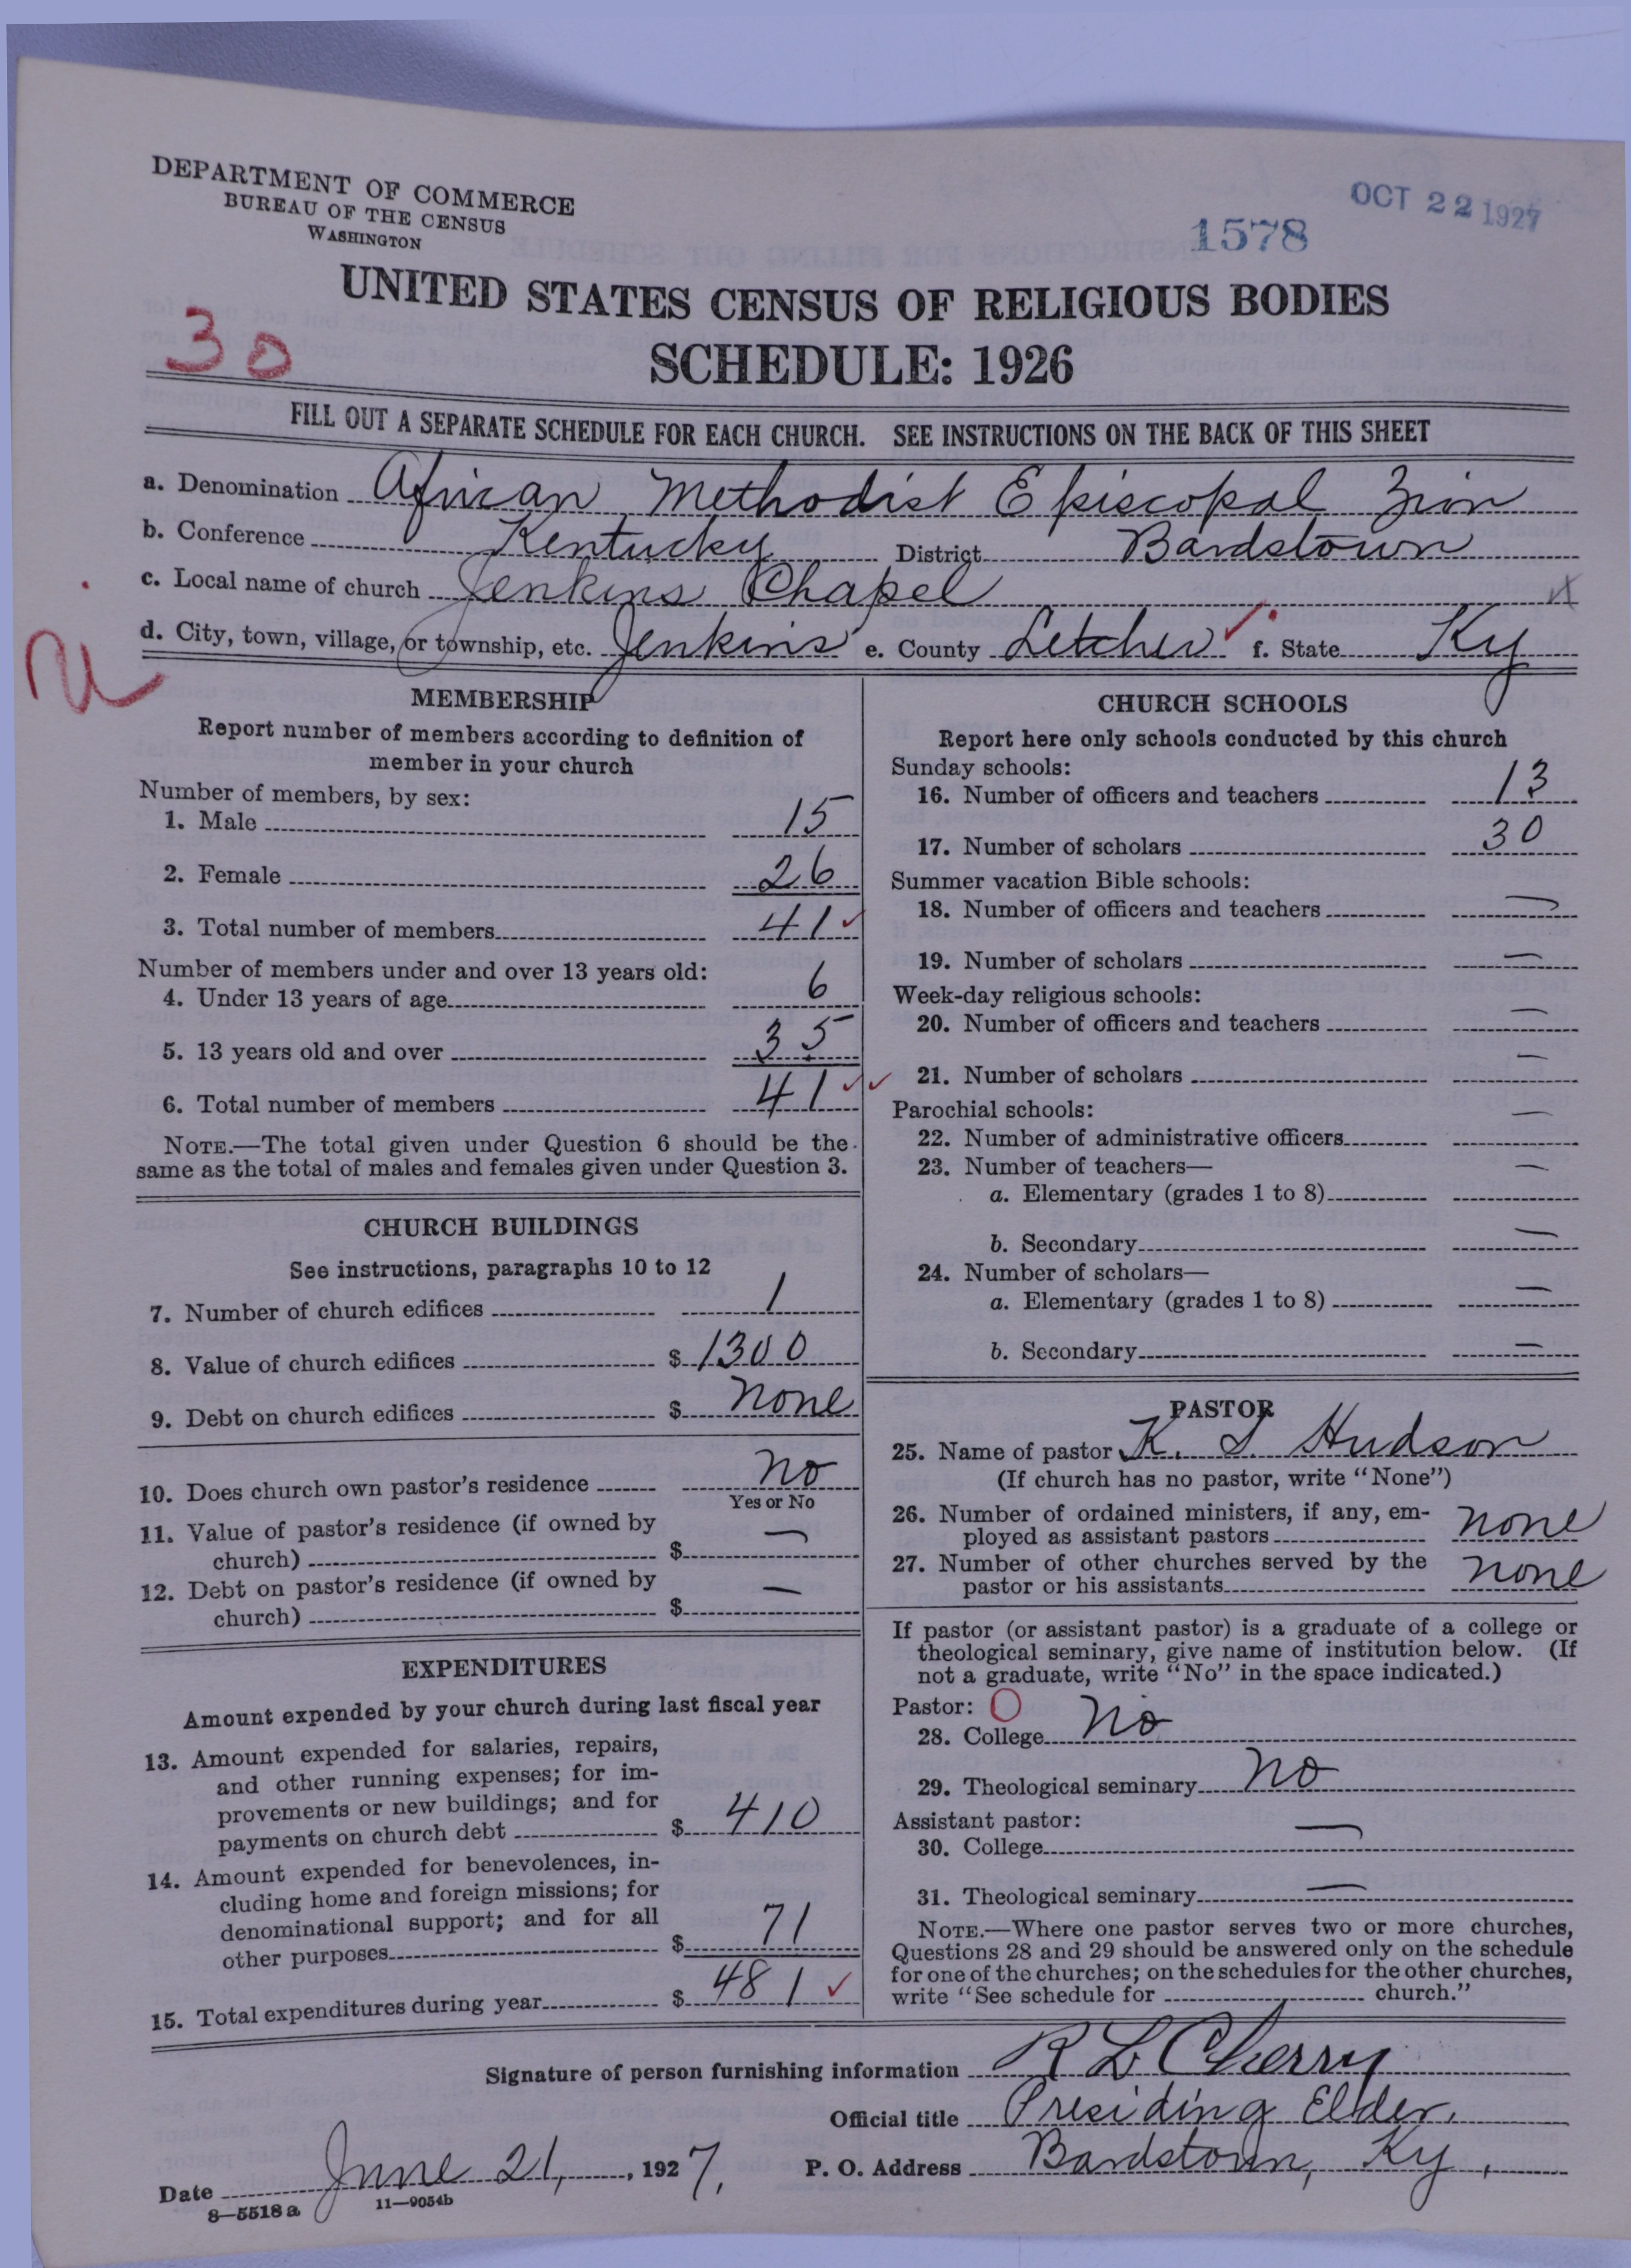 DEPARTMENT OF COMMERCE
BUREAU OF THE CENSUS
WASHINGTON
OCT 22 1927
1578
UNITED STATES CENSUS OF RELIGIOUS BODIES
30
SCHEDULE: 1926
FILL OUT A SEPARATE SCHEDULE FOR EACH CHURCH. SEE INSTRUCTIONS ON THE BACK OF THIS SHEET
a. Denomination African Methodist Episcopal Zion
b. Conference Kentucky District Bardstown
c. Local name of church Jenkins Chapel
d. City, town, village, or township, etc. Jenkins e. County Letcher f. State Ky
MEMBERSHIP
Report number of members according to definition of
member in your church
Number of members, by sex:
1. Male 15
2. Female 26
3. Total number of members 41
Number of members under and over 13 years old:
4. Under 13 years of age 6
5. 13 years old and over 35
6. Total number of members 41
NOTE.—The total given under Question 6 should be the
same as the total of males and females given under Question 3.
CHURCH BUILDINGS
See instructions, paragraphs 10 to 12
7. Number of church edifices 1
8. Value of church edifices $ 1300
9. Debt on church edifices $ none
10. Does church own pastor's residence no
Yes or No
11. Value of pastor's residence (if owned by
church) $ —
12. Debt on pastor's residence (if owned by
church) $ —
EXPENDITURES
Amount expended by your church during last fiscal year
13. Amount expended for salaries, repairs,
and other running expenses; for im-
provements or new buildings; and for
payments on church debt $ 410
14. Amount expended for benevolences, in-
cluding home and foreign missions; for
denominational support; and for all
other purposes $ 71
15. Total expenditures during year $ 481
CHURCH SCHOOLS
Report here only schools conducted by this church
Sunday schools:
16. Number of officers and teachers 13
17. Number of scholars 30
Summer vacation Bible schools:
18. Number of officers and teachers —
19. Number of scholars —
Week-day religious schools:
20. Number of officers and teachers —
21. Number of scholars —
Parochial schools:
22. Number of administrative officers —
23. Number of teachers—
a. Elementary (grades 1 to 8) —
b. Secondary —
24. Number of scholars—
a. Elementary (grades 1 to 8) —
b. Secondary —
PASTOR
25. Name of pastor K. S. Hudson
(If church has no pastor, write "None")
26. Number of ordained ministers, if any, em-
ployed as assistant pastors none
27. Number of other churches served by the
pastor or his assistants none
If pastor (or assistant pastor) is a graduate of a college or
theological seminary, give name of institution below. (If
not a graduate, write "No" in the space indicated.)
Pastor: O
28. College No
29. Theological seminary no
Assistant pastor:
30. College —
31. Theological seminary —
NOTE.—Where one pastor serves two or more churches,
Questions 28 and 29 should be answered only on the schedule
for one of the churches; on the schedules for the other churches,
write "See schedule for church."
Signature of person furnishing information R L Cherry
Official title Presiding Elder.
Date June 21, 1927. P. O. Address Bardstown, Ky.
8—5518 a 11—9054b